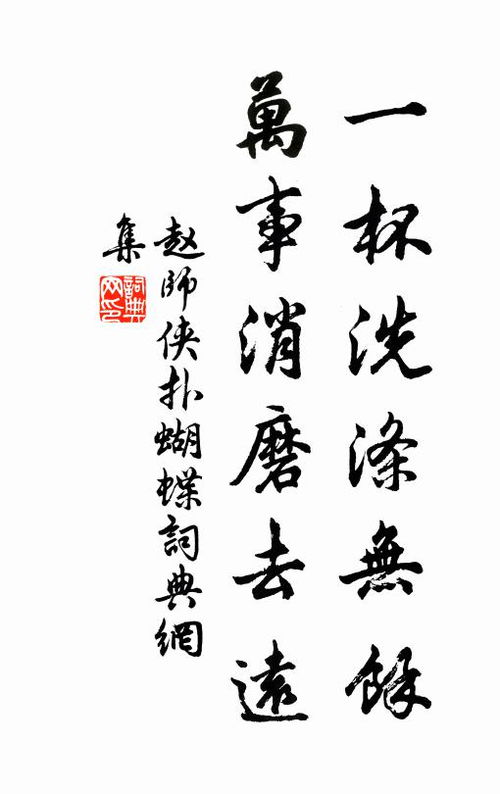 一杯洗滌無餘
萬事消磨去遠
赵師侠扑蝴蝶詞典網
集
詞典网印